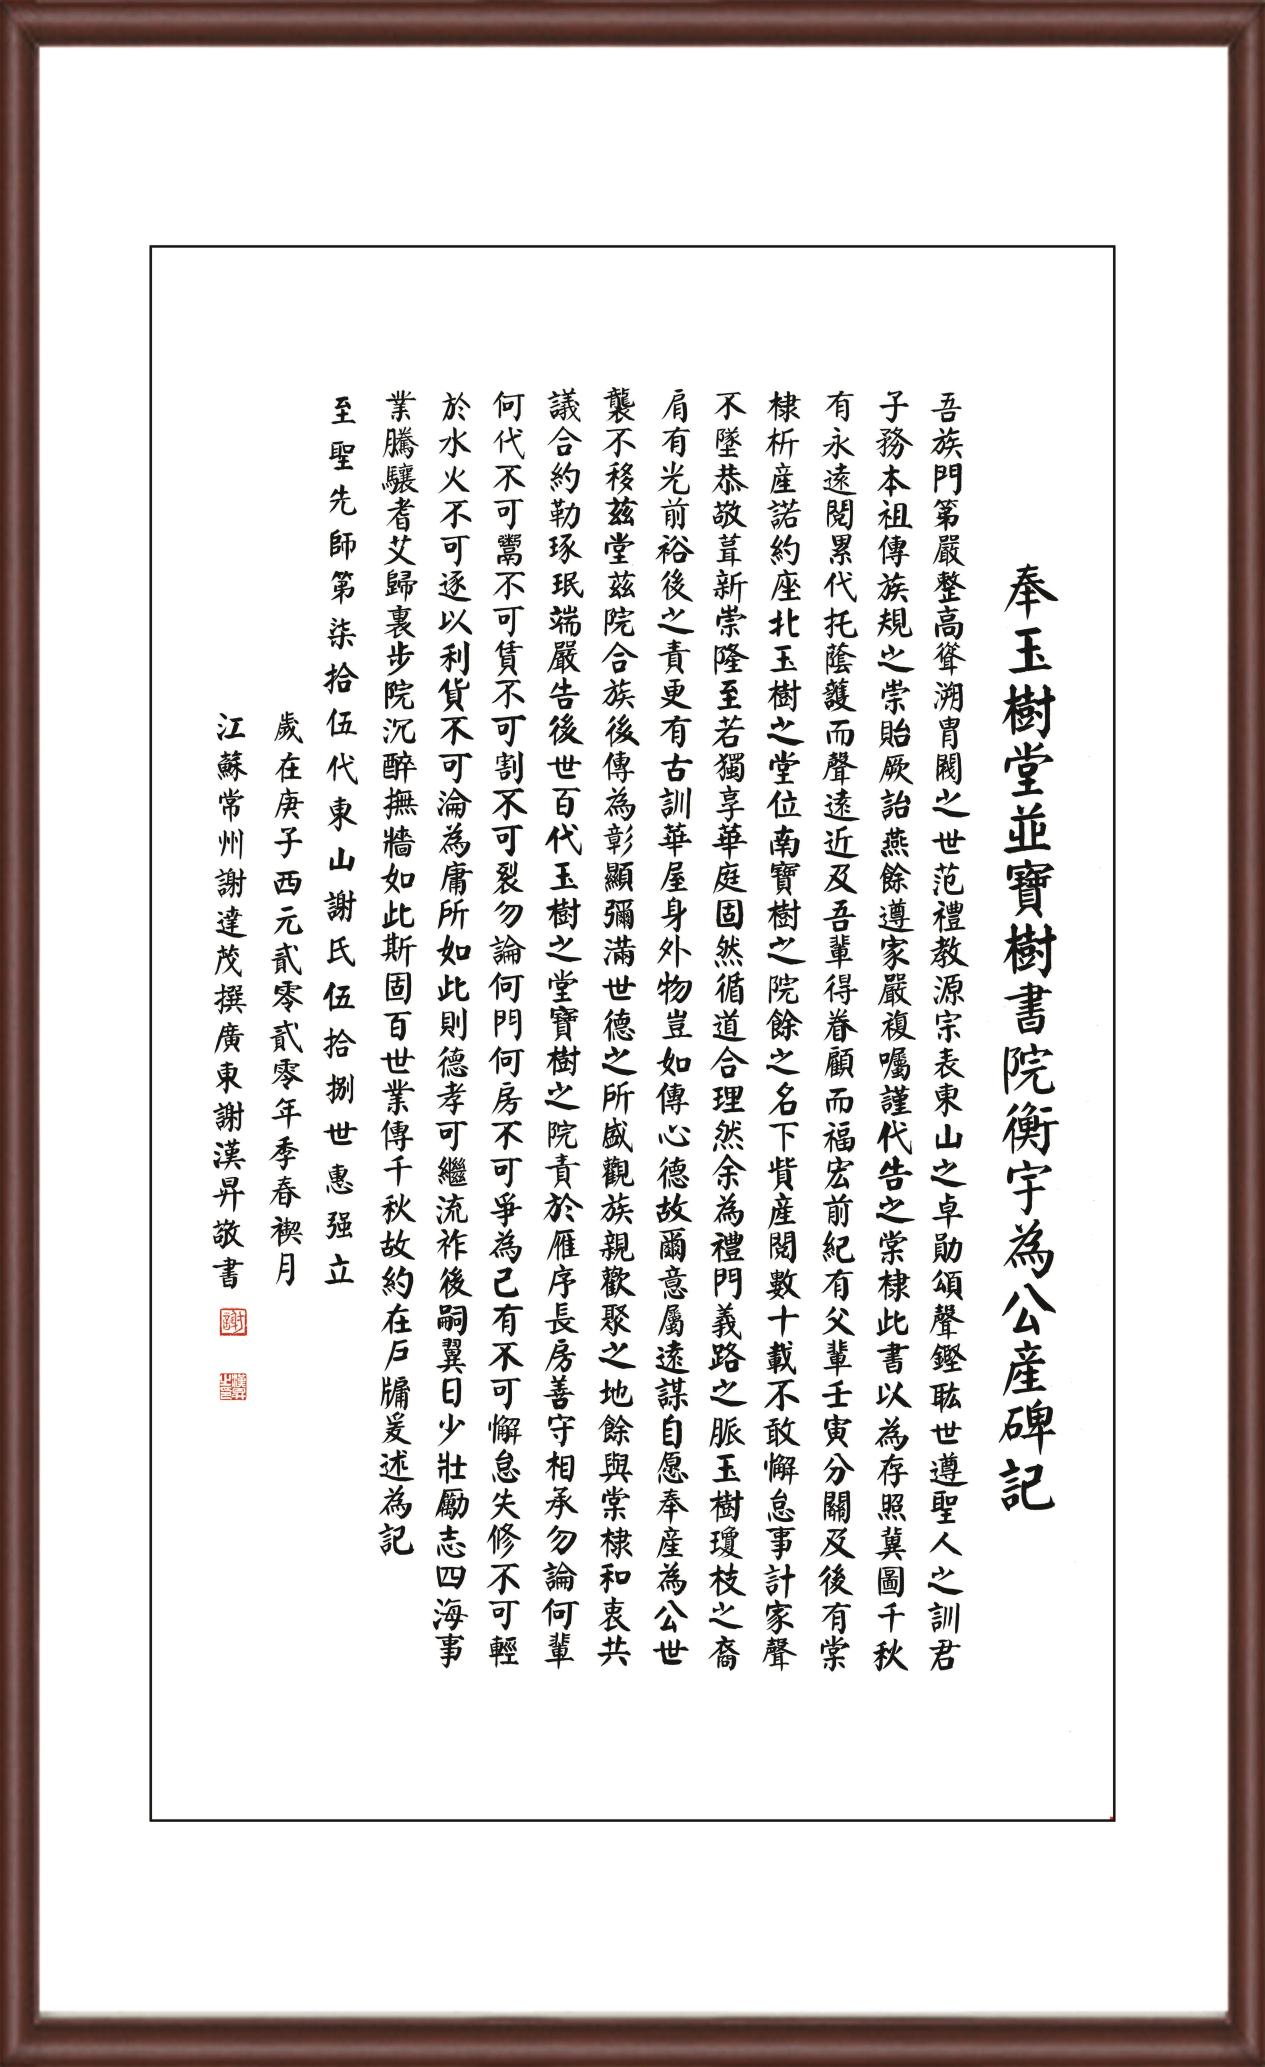 奉玉樹堂並寶樹書院衡宇為公產碑記
吾族門第嚴整高聳溯胄閥之世范禮教源宗表東山之卓勛頌聲鏗耾世遵聖人之訓君
子務本祖傳族規之崇貽厥詒燕餘遵家嚴複囑謹代告之棠棣此書以為存照冀圖千秋
有永遠閱累代托蔭護而聲遠近及吾輩得眷顧而福宏前紀有父輩壬寅分關及後有棠
棣析產諾約座北玉樹之堂位南寶樹之院餘之名下貲產閱數十載不敢懈怠事計家聲
不墜恭敬葺新崇隆至若獨享華庭固然循道合理然余為禮門義路之脈玉樹瓊枝之裔
肩有光前裕後之責更有古訓華屋身外物豈如傳心德故爾意屬遠謀自愿奉產為公世
襲不移茲堂茲院合族後傳為彰顯彌滿世德之所盛觀族親歡聚之地餘與棠棣和衷共
議合約勒琢珉端嚴告後世百代玉樹之堂寶樹之院責於雁序長房善守相承勿論何輩
何代不可鬻不可賃不可割不可裂勿論何門何房不可爭為己有不可懈怠失修不可輕
於水火不可逐以利貨不可淪為庸所如此則德孝可繼流祚後嗣翼日少壯勵志四海事
業騰驤耆艾歸裏步院沉醉撫牆如此斯固百世業傳千秋故約在戶牖爰述為記
至聖先師第柒拾伍代東山謝氏伍拾捌世惠强立
歲在庚子西元貳零貳零年季春禊月
江蘇常州謝達茂撰廣東謝漢昇敬書
謝
漢昇之印